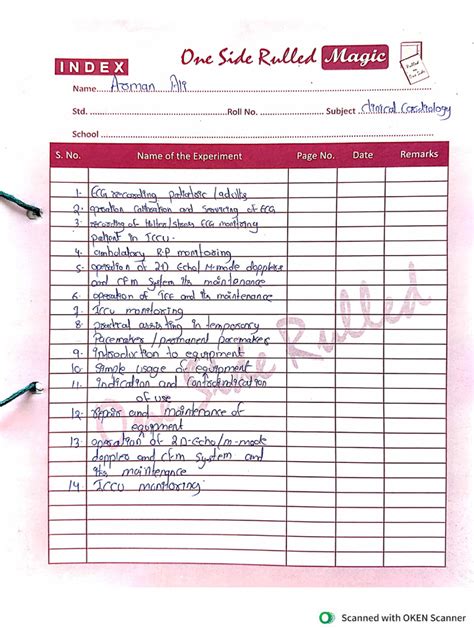 INDEX
One Side Rulled Magic
Rulled
One Side
Name Arman Ali
Std. Roll No. Subject clinical Cardiology
School
S. No. Name of the Experiment Page No. Date Remarks
1. ECG recording pediatric / adults
2. operation Calibration and Servicing of ECG
3. recording of Holter/stress ECG monitoring
patient in ICCU.
4. ambulatory B.P monitoring
5. operation of 2D Echo/M-mode dopplers
and CFM System its maintenance
6. operation of TEE and its maintenance
7. ICCU monitoring
8. practical assisting in temporary
Pacemakers / permanent pacemakers
9. Introduction to equipment
10. Simple usage of equipment
11. indication and Contraindication
of use
12. repair and maintenance of
equipment
13. operation of 2D-Echo/m-mode
dopplers and CFM System and
its maintenance
14. ICCU monitoring.
One Side Rulled
Scanned with OKEN Scanner